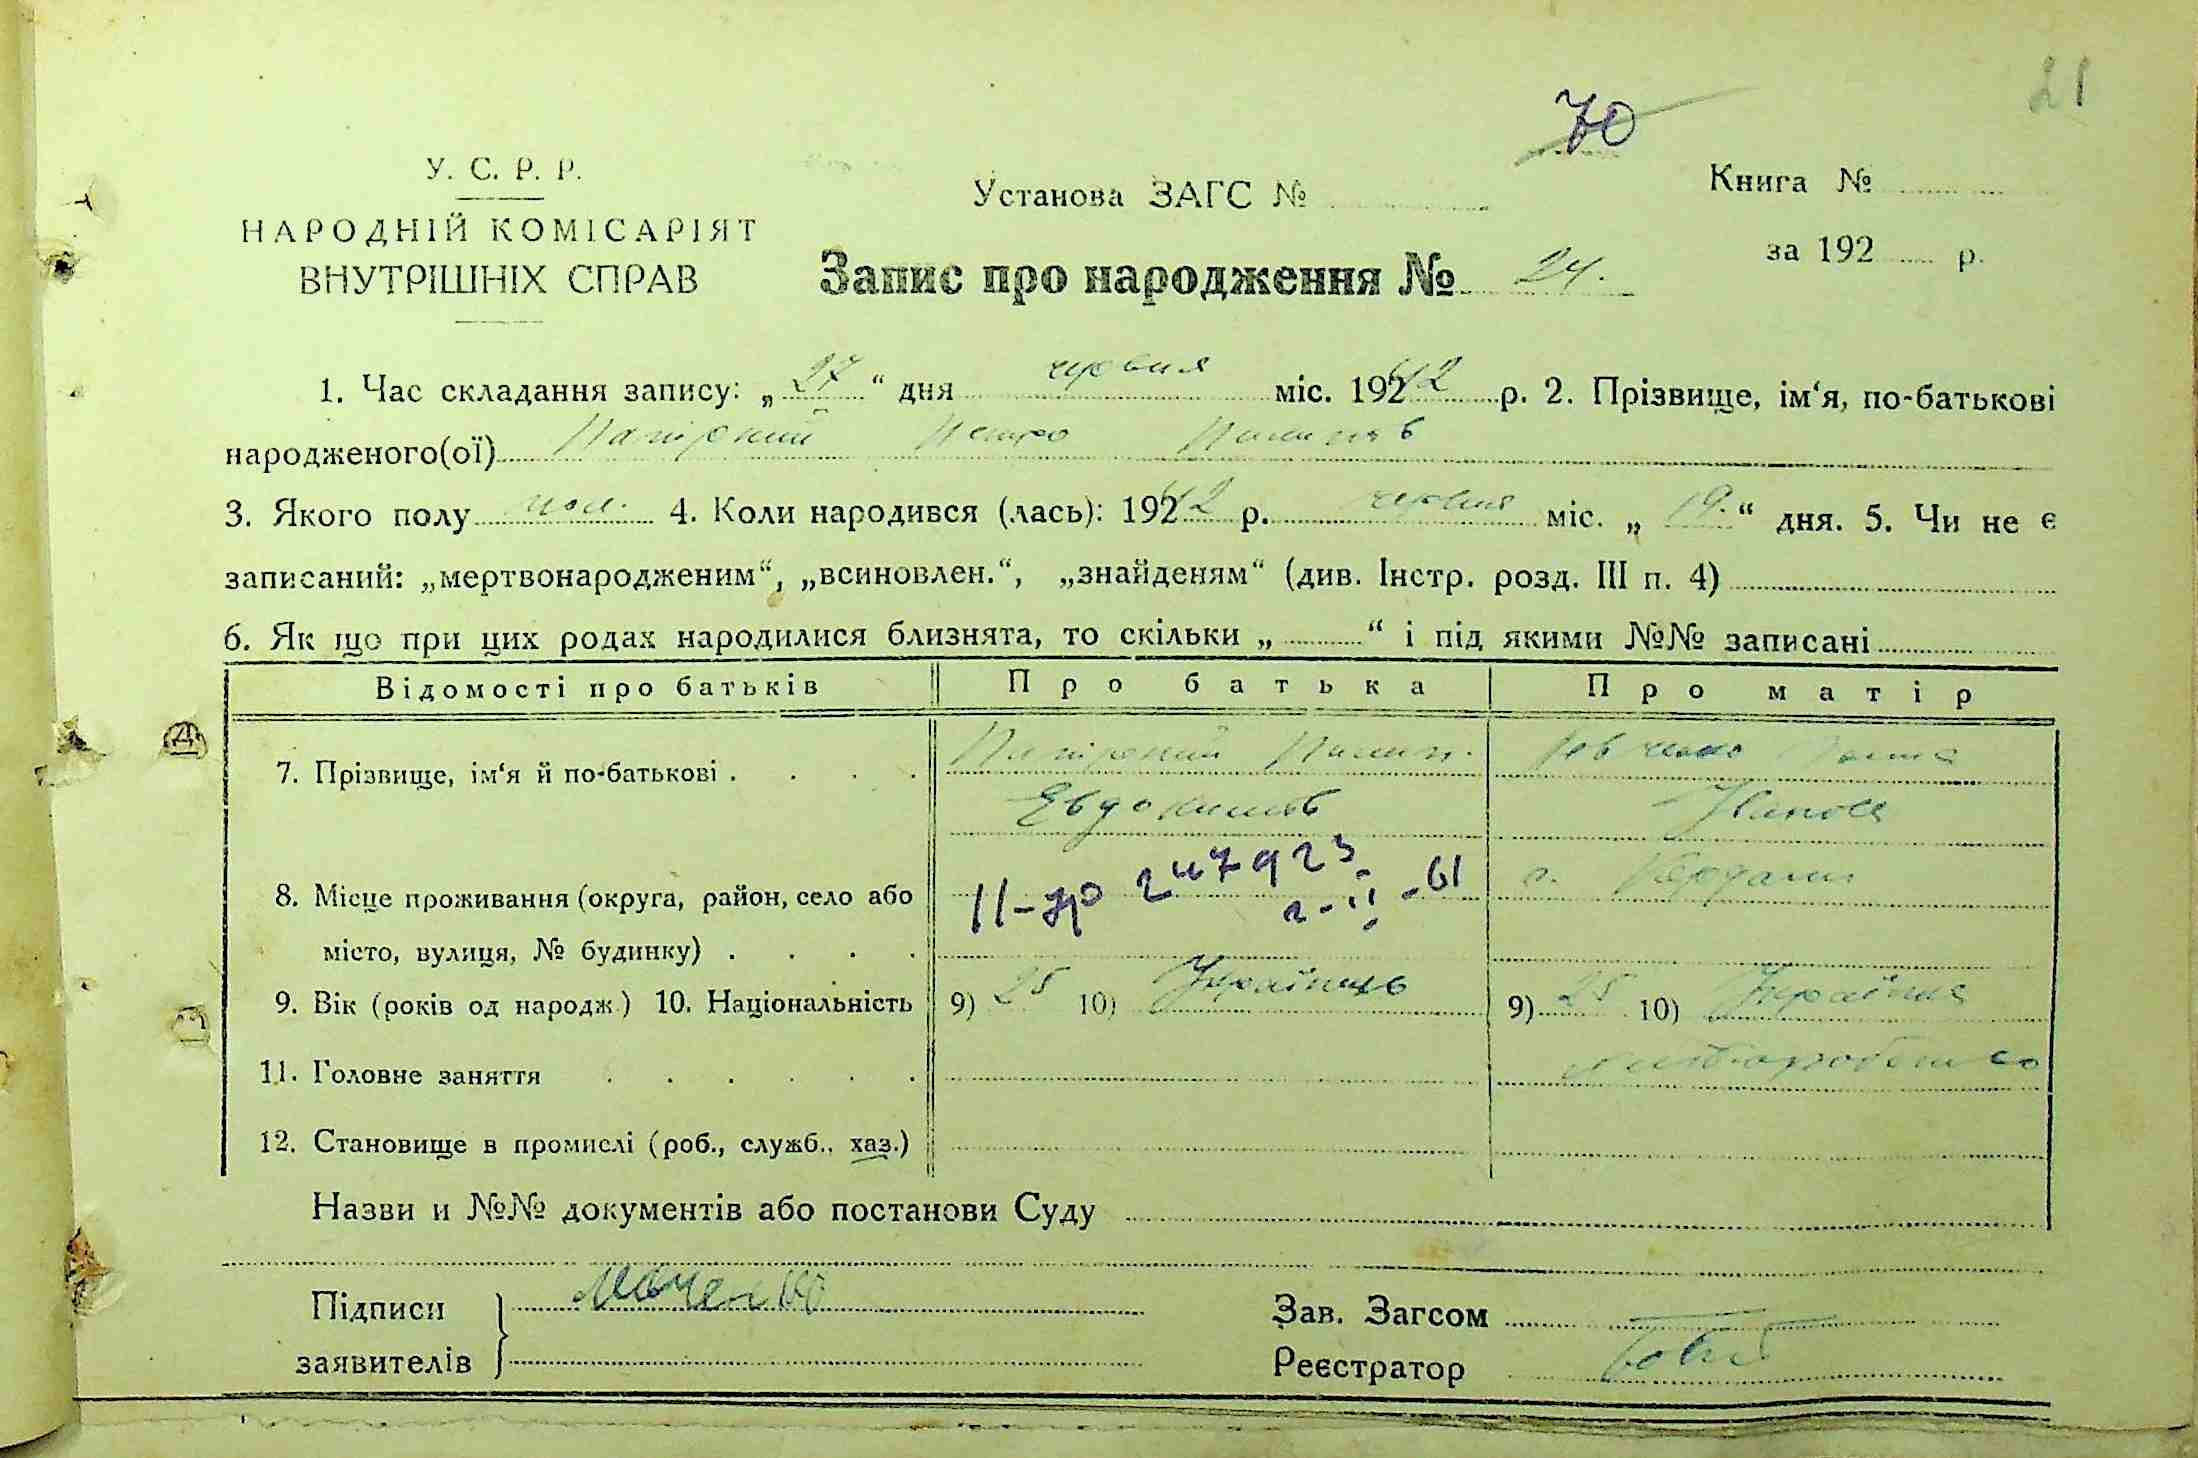 21
70
У. С. Р. Р.
НАРОДНІЙ КОМІСАРІЯТ
ВНУТРІШНІХ СПРАВ
Установа ЗАГС №
Книга №
за 192 р.
Запис про народження № 24.
1. Час складання запису: „27“ дня червня міс. 19242 р. 2. Прізвище, ім‘я, по-батькові
народженого(ої) Петро
3. Якого полу чол. 4. Коли народився (лась): 19242 р. червня міс. „19“ дня. 5. Чи не є
записаний: „мертвонародженим“, „всиновлен.“, „знайденям“ (див. Інстр. розд. III п. 4)
6. Як що при цих родах народилися близнята, то скільки „ “ і під якими №№ записані
Відомості про батьків Про батька Про матір
7. Прізвище, ім‘я й по-батькові .
Евдокимов Іванова
8. Місце проживання (округа, район, село або
місто, вулиця, № будинку) .
9. Вік (років од народж.) 10. Національність 9) 25 10) Українець 9) 25 10) Українка
11. Головне заняття
12. Становище в промислі (роб., служб., хаз.)
Назви и №№ документів або постанови Суду
Підписи
заявителів
Зав. Загсом
Реєстратор